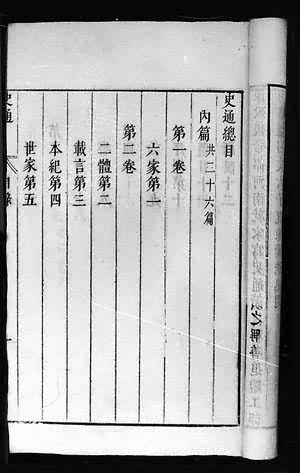 史通總目
內篇共三十六篇
第一卷
六家第一
第二卷
二體第二
載言第三
本紀第四
世家第五
史通
目錄